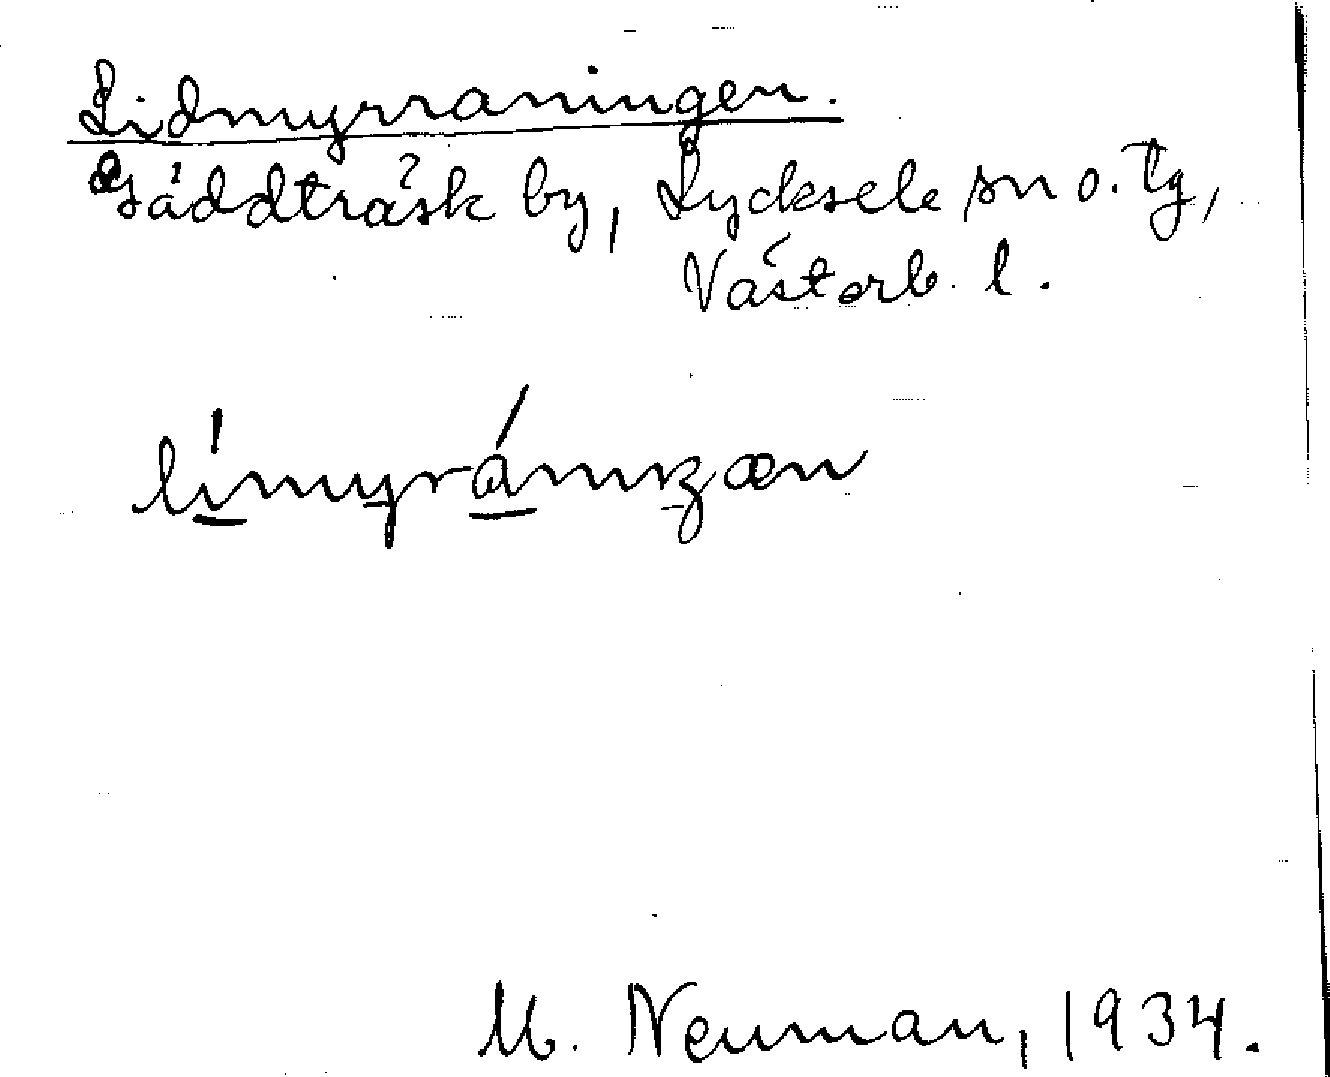 Lidmyrraningen.
Gäddträsk by, Lycksele sn o. tg,
Västerb. l.
límyrániŋæn
M. Neuman, 1934.